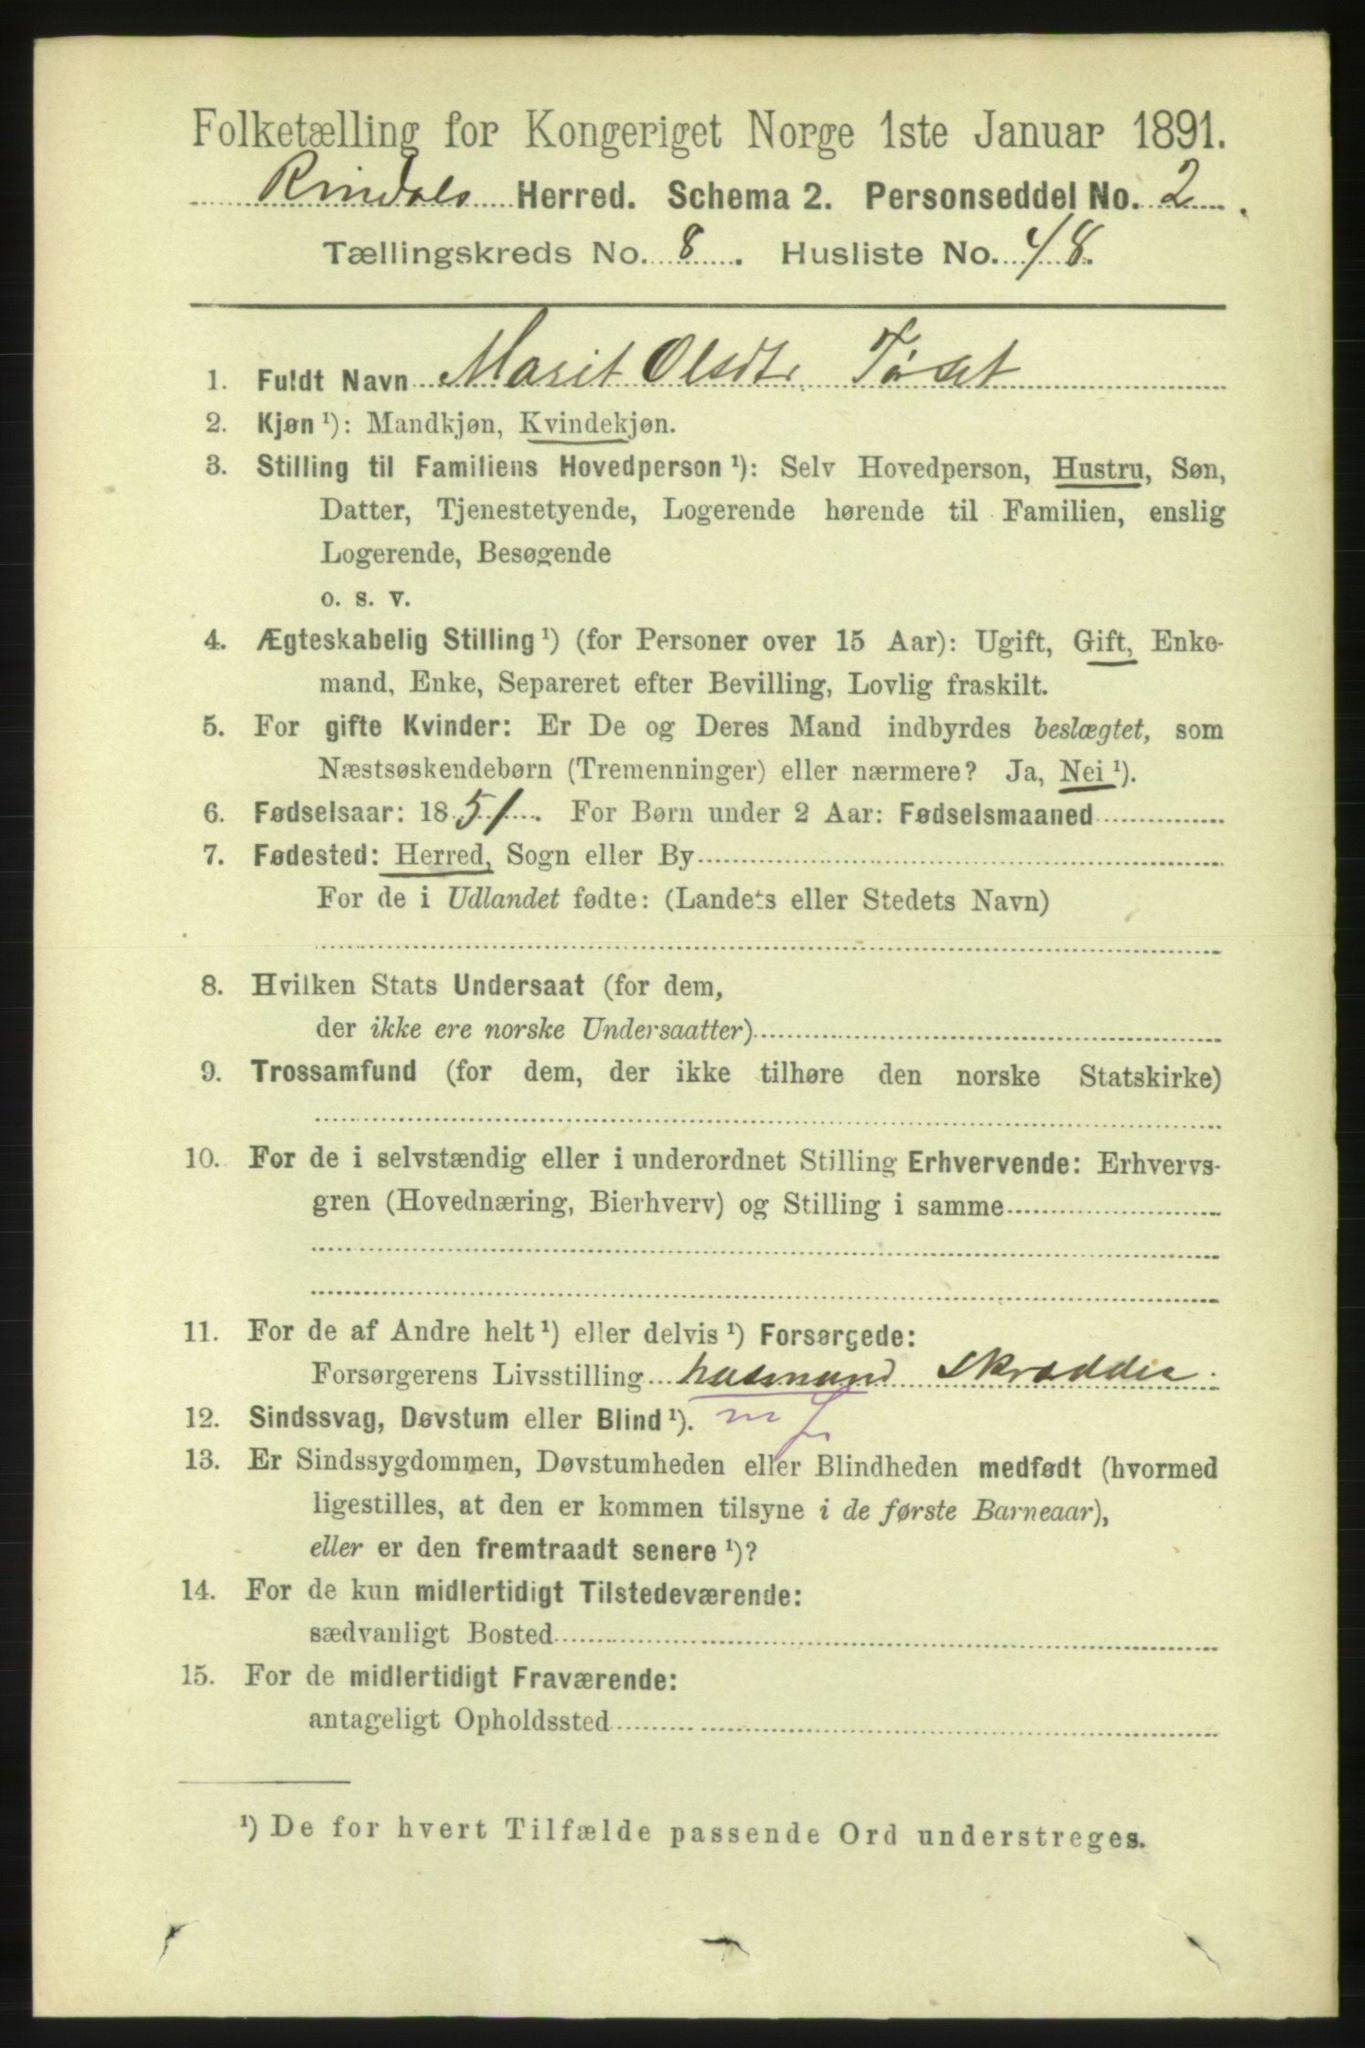 Folketælling for Kongeriget Norge 1ste Januar 1891.
Rindals Herred. Schema 2. Personseddel No. 2.
Tællingskreds No. 8. Husliste No. 48.
1. Fuldt Navn Marit Olsdtr. Tøset
2. Kjøn ¹): Mandkjøn, Kvindekjøn.
3. Stilling til Familiens Hovedperson ¹): Selv Hovedperson, Hustru, Søn,
Datter, Tjenestetyende, Logerende hørende til Familien, enslig
Logerende, Besøgende
o. s. v.
4. Ægteskabelig Stilling ¹) (for Personer over 15 Aar): Ugift, Gift, Enke-
mand, Enke, Separeret efter Bevilling, Lovlig fraskilt.
5. For gifte Kvinder: Er De og Deres Mand indbyrdes beslægtet, som
Næstsøskendebørn (Tremenninger) eller nærmere? Ja, Nei ¹).
6. Fødselsaar: 1851. For Børn under 2 Aar: Fødselsmaaned
7. Fødested: Herred, Sogn eller By
For de i Udlandet fødte: (Landets eller Stedets Navn)
8. Hvilken Stats Undersaat (for dem,
der ikke ere norske Undersaatter)
9. Trossamfund (for dem, der ikke tilhøre den norske Statskirke)
10. For de i selvstændig eller i underordnet Stilling Erhvervende: Erhvervs-
gren (Hovednæring, Bierhverv) og Stilling i samme
11. For de af Andre helt ¹) eller delvis ¹) Forsørgede:
Forsørgerens Livsstilling husmand skrædder.
12. Sindssvag, Døvstum eller Blind ¹). m J.
13. Er Sindssygdommen, Døvstumheden eller Blindheden medfødt (hvormed
ligestilles, at den er kommen tilsyne i de første Barneaar),
eller er den fremtraadt senere ¹)?
14. For de kun midlertidigt Tilstedeværende:
sædvanligt Bosted
15. For de midlertidigt Fraværende:
antageligt Opholdssted
¹) De for hvert Tilfælde passende Ord understreges.